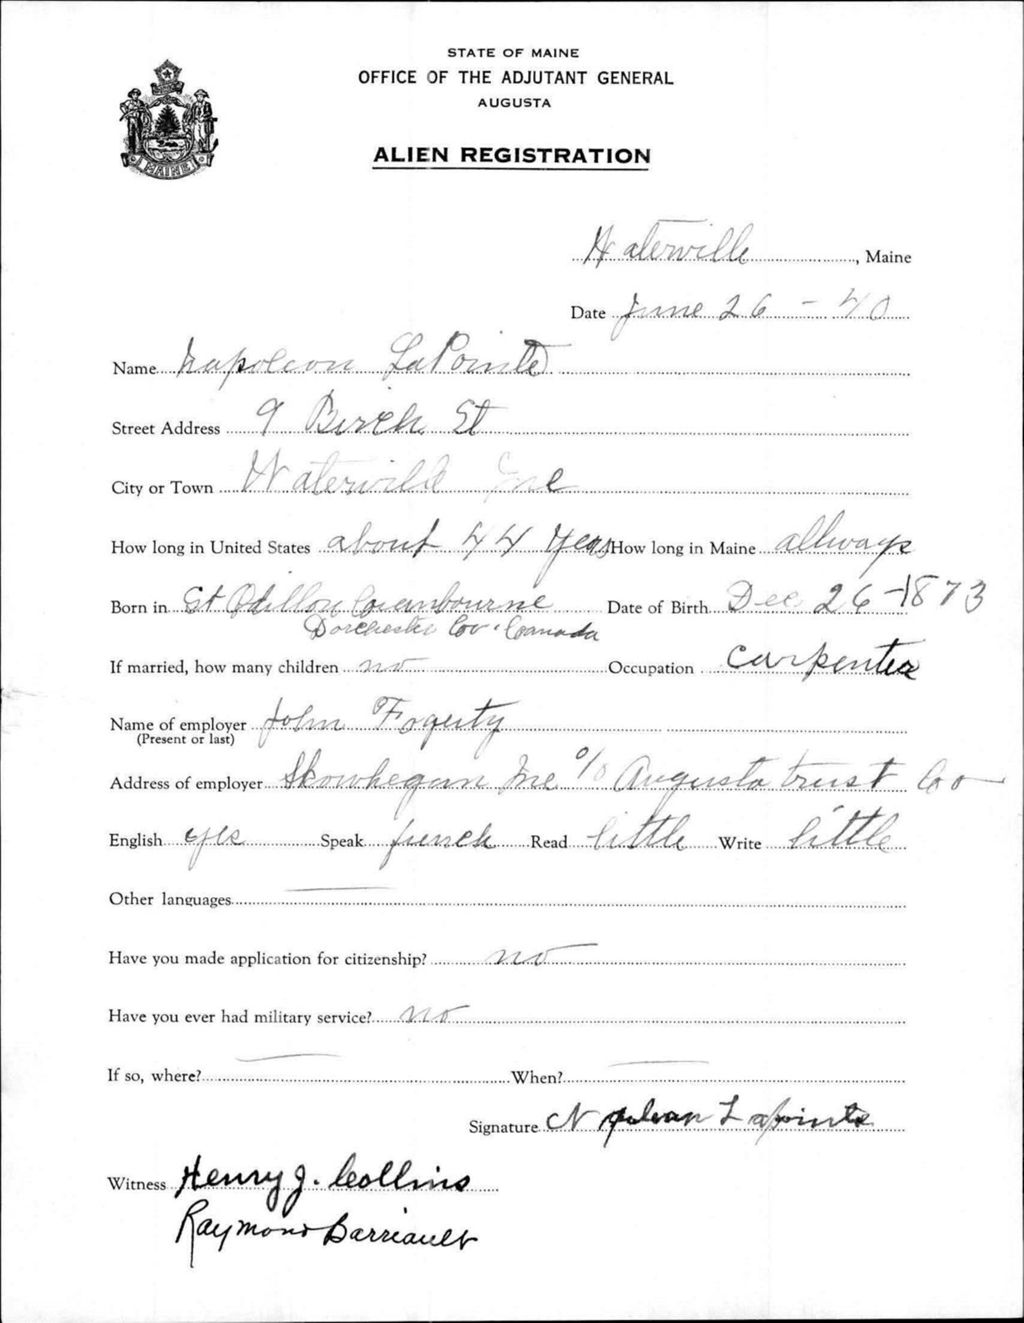 STATE OF MAINE
OFFICE OF THE ADJUTANT GENERAL
AUGUSTA
ALIEN REGISTRATION
MAINE
Waterville, Maine
Date June 26 - 40
Name Napoleon LaPointe
Street Address 9 Birch St
City or Town Waterville Me
How long in United States about 44 Years How long in Maine allways
Born in St Odillon Cranbourne Date of Birth Dec 26-1873
Dorchester Co. Canada
If married, how many children no Occupation carpenter
Name of employer John Fogerty
(Present or last)
Address of employer Skowhegan Me % Augusta trust Co
English yes Speak french Read little Write little
Other languages
Have you made application for citizenship? no
Have you ever had military service? no
If so, where? When?
Signature Lapointe
Witness Henry J. Collins
Raymond Barriault